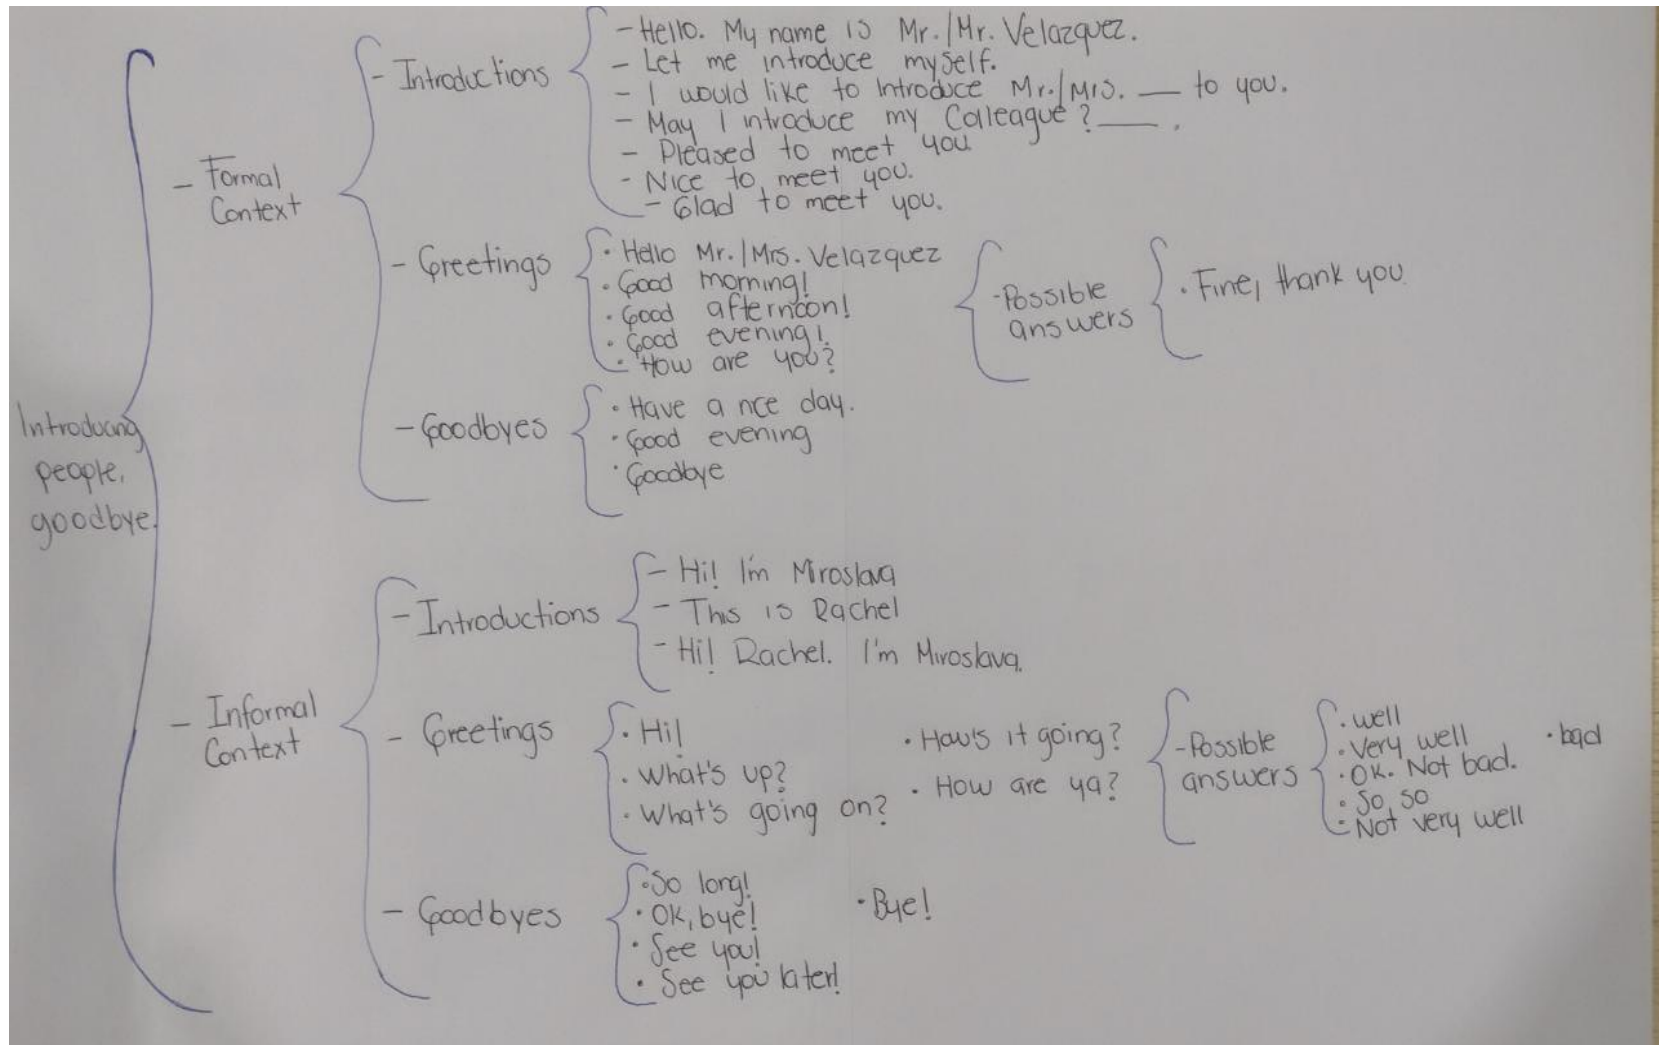 Introducing
people,
goodbye.
- Formal
Context
- Introductions
- Hello. My name is Mr./Mr. Velazquez.
- Let me introduce myself.
- I would like to Introduce Mr./Mrs. ___ to you.
- May I introduce my Colleague? ___ .
- Pleased to meet you
- Nice to meet you.
- Glad to meet you.
- Greetings
· Hello Mr./Mrs. Velazquez
· Good morning!
· Good afternoon!
· Good evening!
· How are you?
- Possible
answers
· Fine, thank you
- Goodbyes
· Have a nce day.
· Good evening
· Goodbye
- Informal
Context
- Introductions
- Hi! I'm Miroslava
- This is Rachel
- Hi! Rachel. I'm Miroslava.
- Greetings
· Hi!
· What's up?
· What's going on?
· How's it going?
· How are ya?
- Possible
answers
· well
· Very well
· OK. Not bad.
· So, so
· Not very well
· bad
- Goodbyes
· So long!
· OK, bye!
· See you!
· See you later!
· Bye!